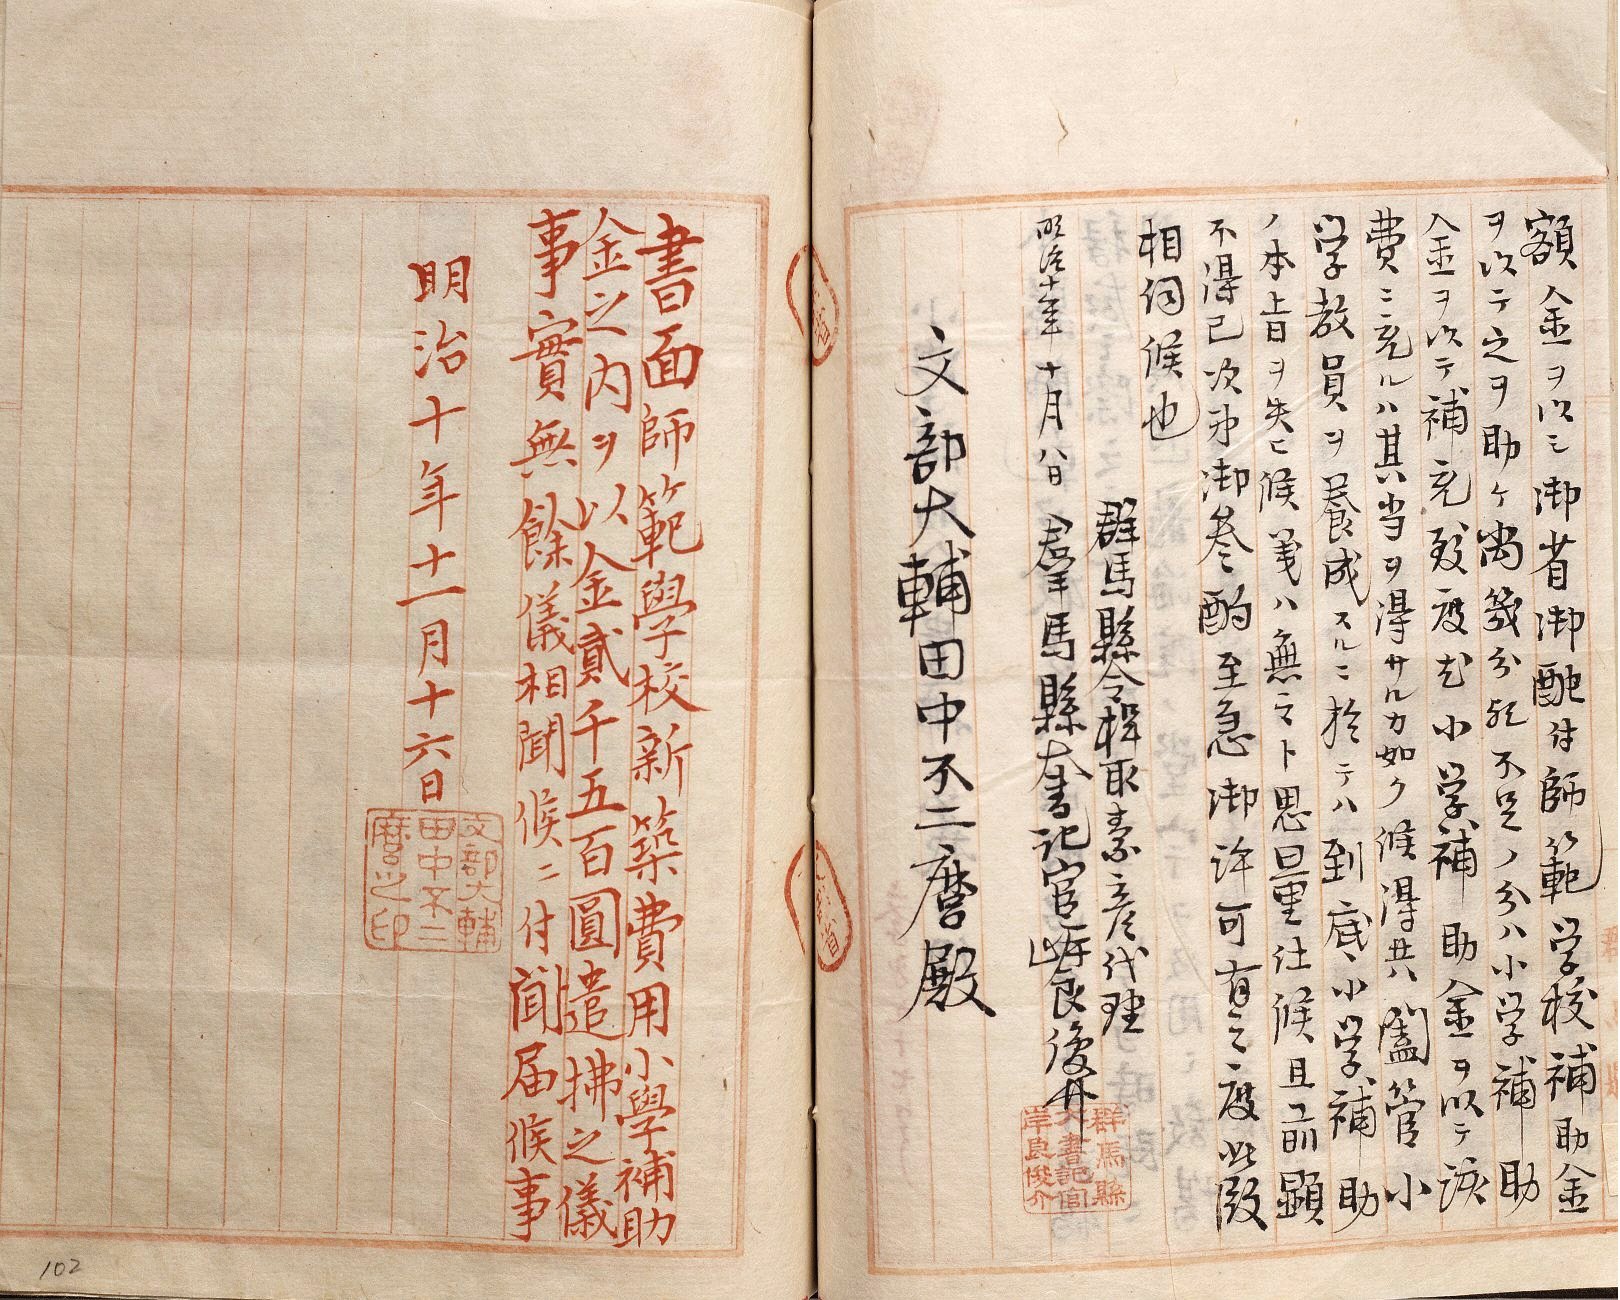 額金ヲ以シ御省御配付師範学校補助金
ヲ以テ之ヲ助ケ尚幾分敟不足ノ分ハ小学補助
金ヲ以テ補充致度尤小学補助金ヲ以テ該
費ニ充ルハ其当ヲ得サルカ如ク候得共闔管小
学教員ヲ養成スルニ於テハ到底小学補助
ノ本旨ヲ失ヒ候義ハ無之ト思量仕候且前顕
不得已次第御参酌至急御許可有之度此段
相伺候也
群馬縣令楫取素彦代理
明治十年十月八日 群馬縣大書記官岸良俊介
群馬縣
大書記官
岸良俊介
文部大輔田中不二麿殿
書面師範學校新築費用小學補助
金之内ヲ以金貳千五百圓遣拂之儀
事實無餘儀相聞候ニ付聞届候事
明治十年十一月十六日
文部大輔
田中不二
麿之印
102